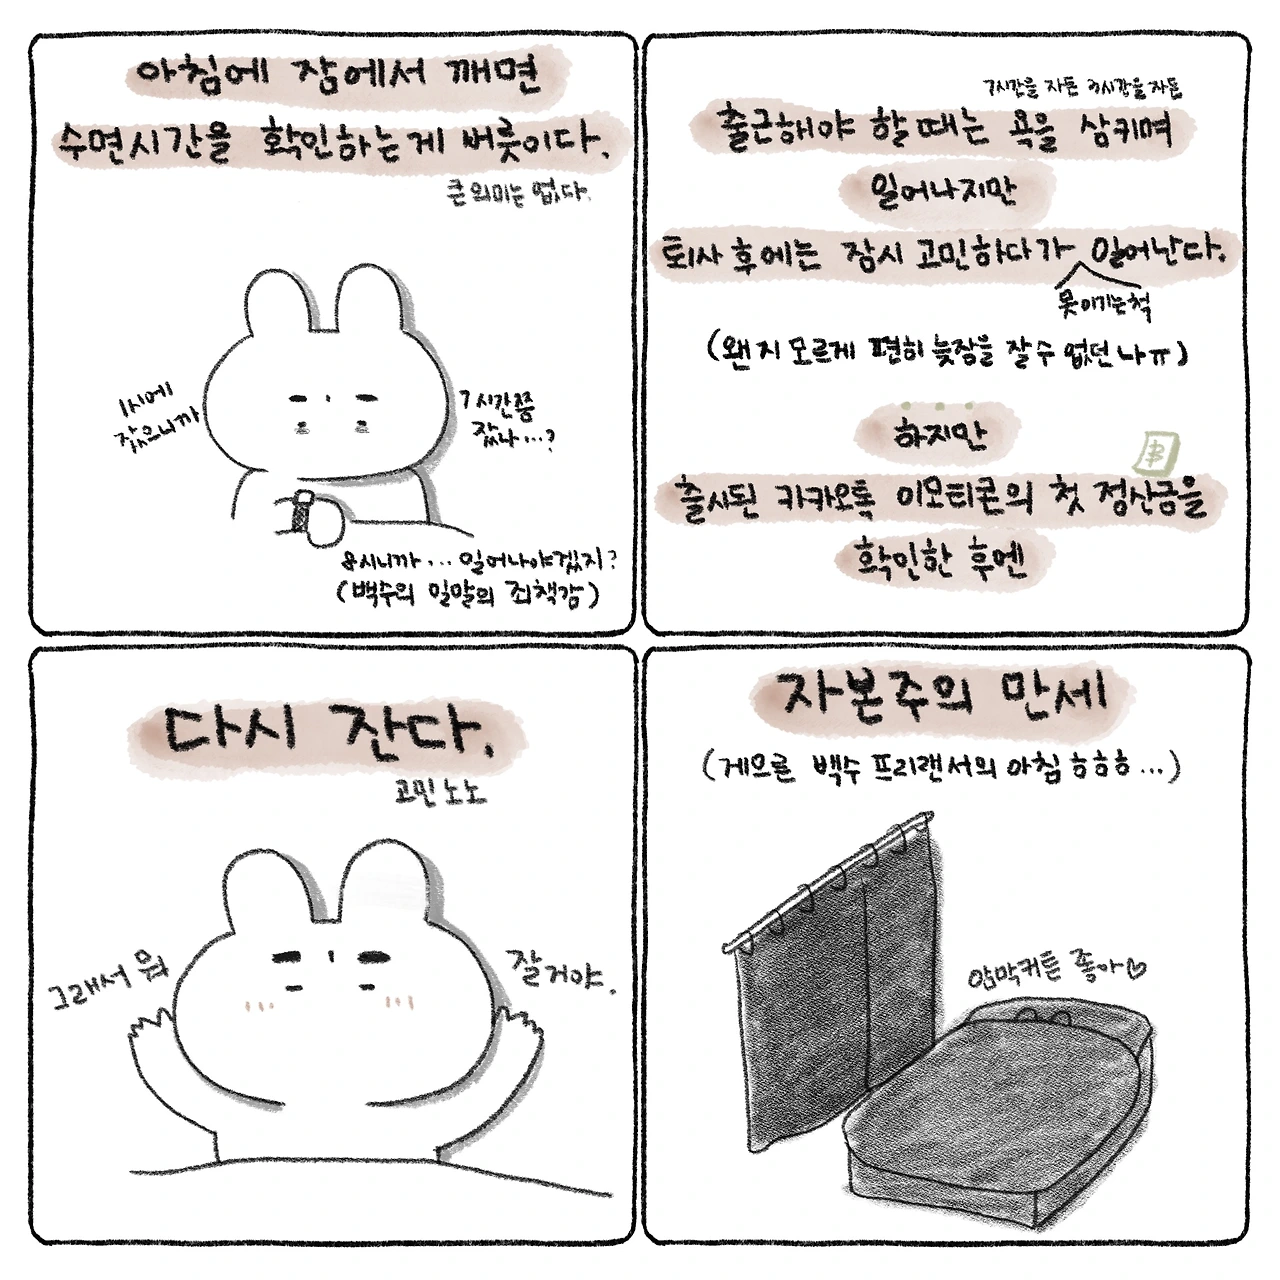 아침에 잠에서 깨면
수면시간을 확인하는게 버릇이다.
큰 의미는 없다.
1시에
잤으니까
7시간쯤
잤나...?
8시니까... 일어나야겠지?
(백수의 일말의 죄책감)
7시간을 자든 3시간을 자든
출근해야 할 때는 욕을 삼키며
일어나지만
퇴사 후에는 잠시 고민하다가 일어난다.
못이기는척
(왠지 모르게 편히 늦잠을 잘 수 없던 나ㅠ)
하지만
출시된 카카오톡 이모티콘의 첫 정산금을
확인한 후엔
다시 잔다.
고민 노노
그래서 뭐
잘거야.
자본주의 만세
(게으른 백수 프리랜서의 아침 ㅎㅎㅎ...)
암막커튼 좋아♡